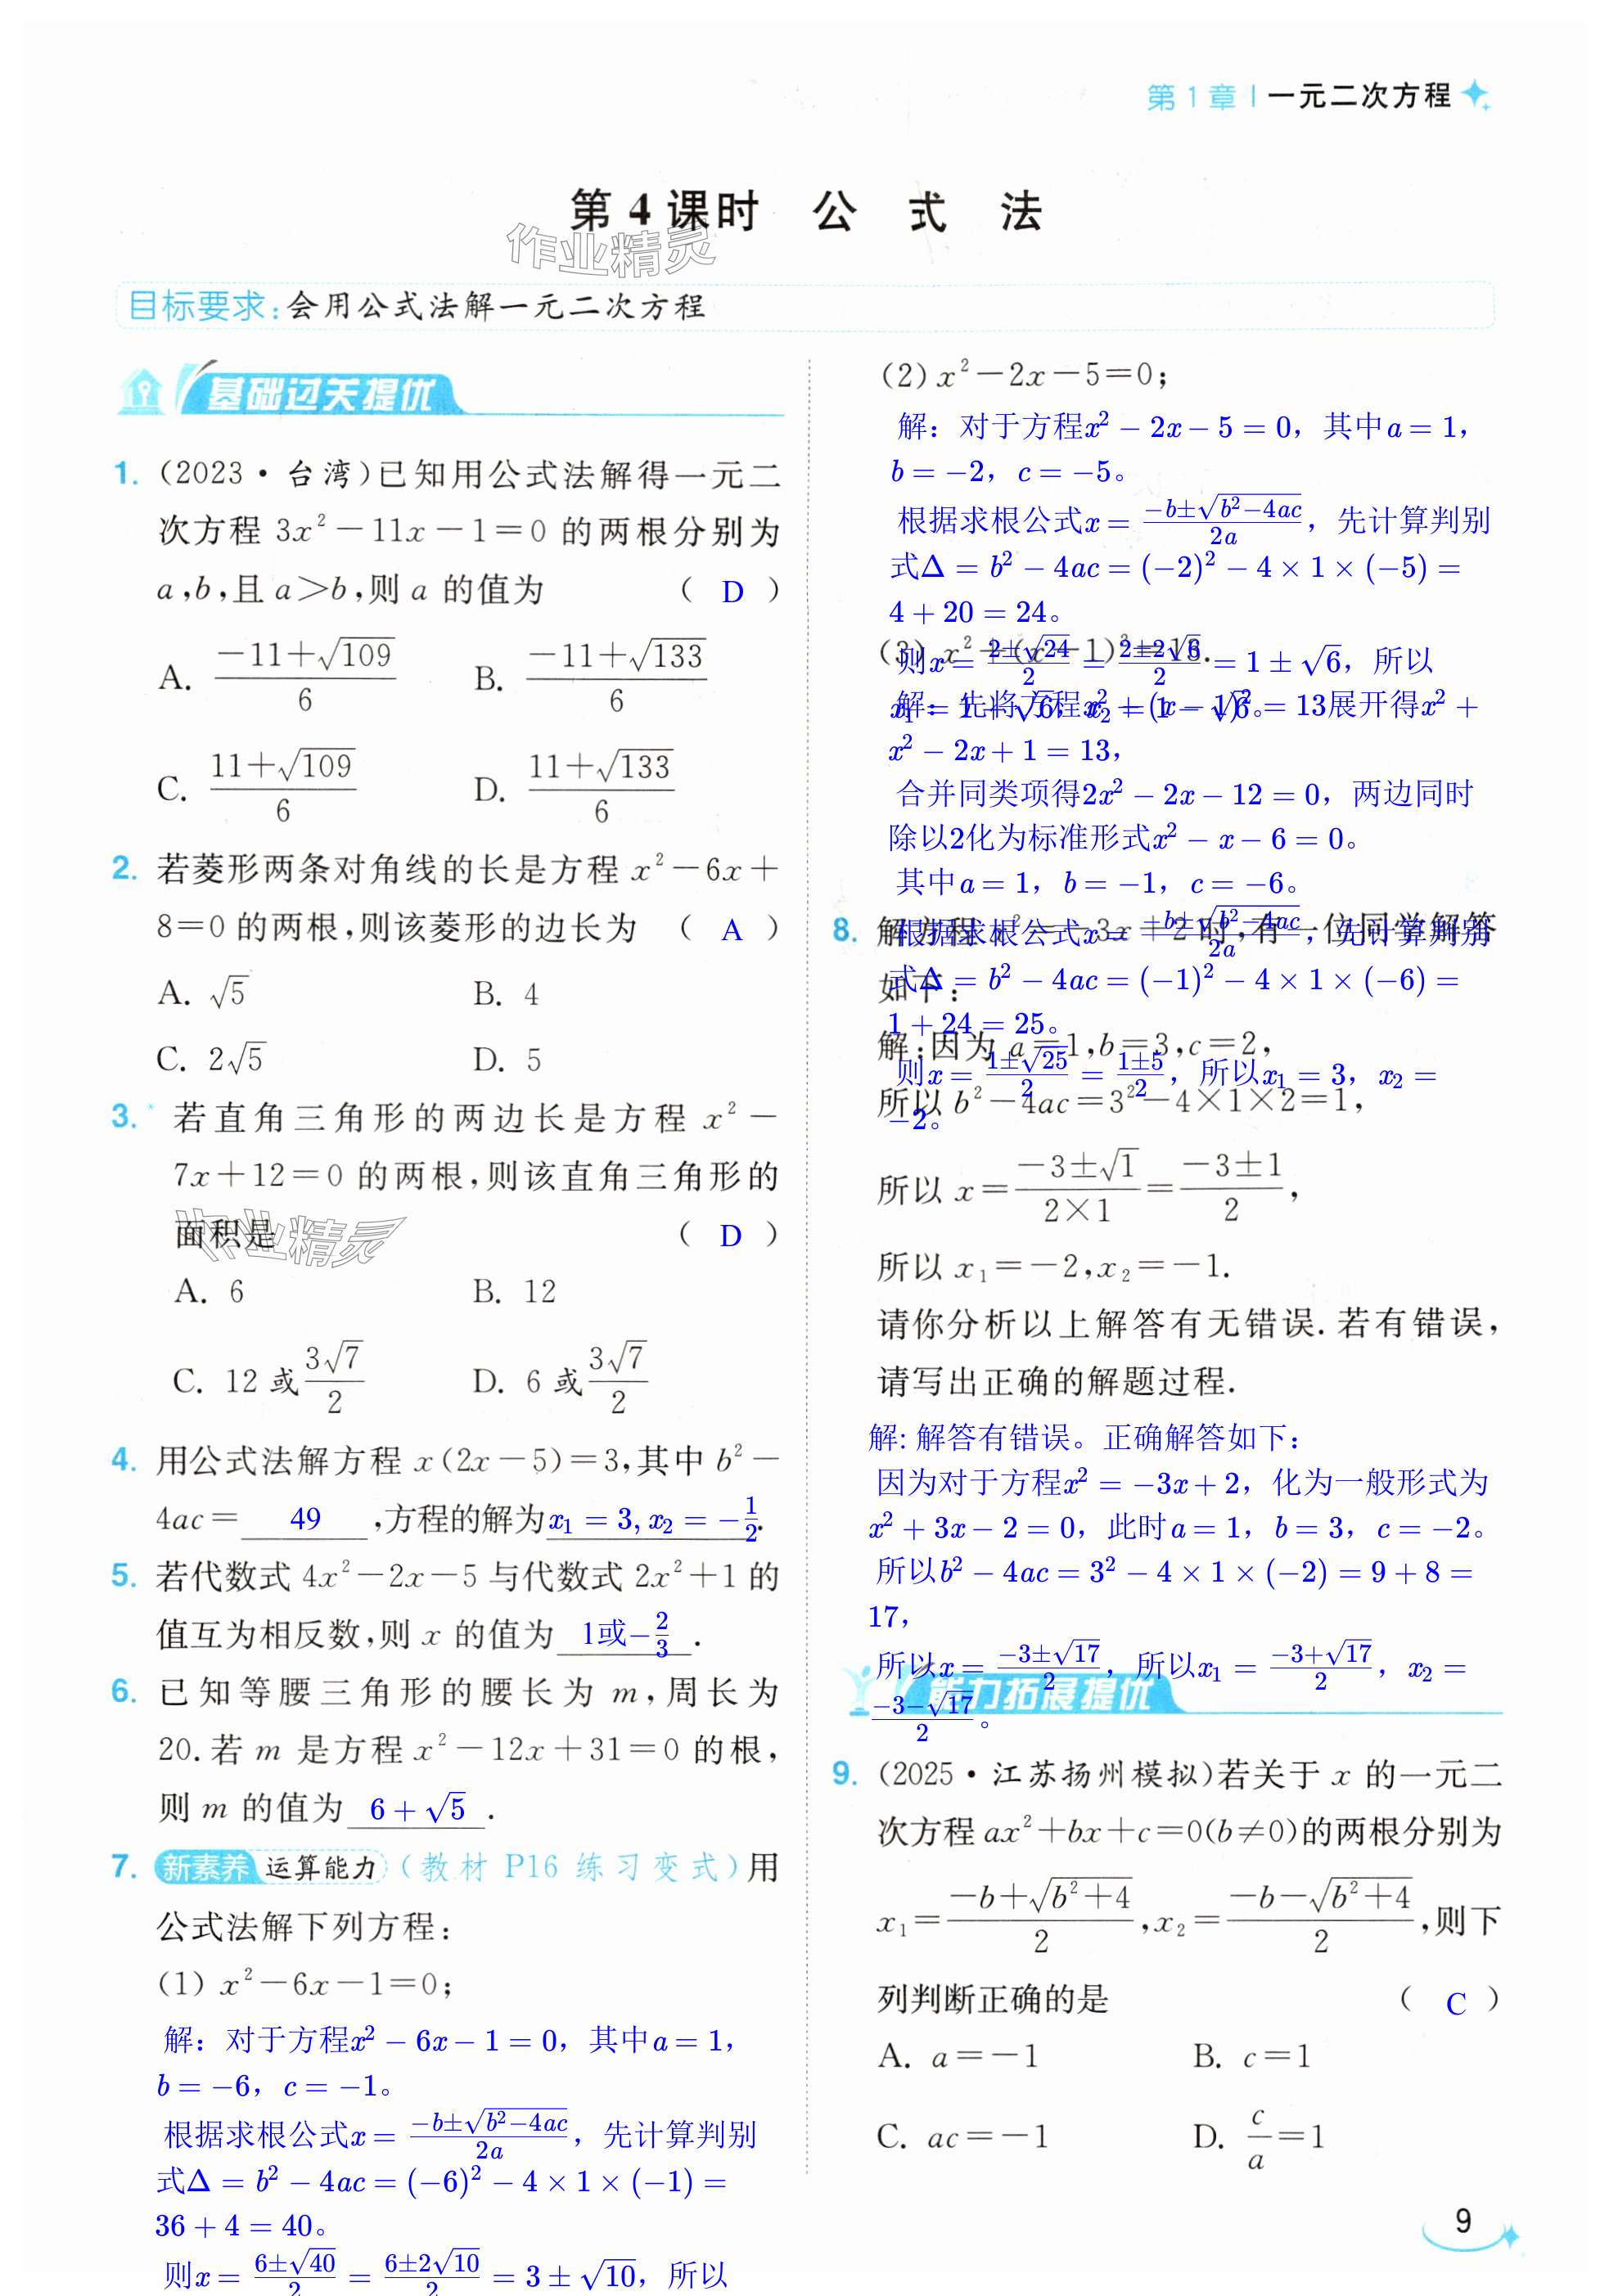 第1章 | 一元二次方程
第 4 课时 公 式 法
作业精灵
目标要求:会用公式法解一元二次方程
基础过关提优
1. (2023·台湾)已知用公式法解得一元二
次方程 3x²-11x-1=0 的两根分别为
a,b,且 a>b,则 a 的值为 ( D )
A. (-11+√109)/6 B. (-11+√133)/6
C. (11+√109)/6 D. (11+√133)/6
2. 若菱形两条对角线的长是方程 x²-6x+
8=0 的两根,则该菱形的边长为 ( A )
A. √5 B. 4
C. 2√5 D. 5
3. 若直角三角形的两边长是方程 x²-
7x+12=0 的两根,则该直角三角形的
面积是 ( D )
作业精灵
A. 6 B. 12
C. 12 或 3√7/2 D. 6 或 3√7/2
4. 用公式法解方程 x(2x-5)=3,其中 b²-
4ac= 49 ,方程的解为 x₁ = 3, x₂ = -1/2.
5. 若代数式 4x²-2x-5 与代数式 2x²+1 的
值互为相反数,则 x 的值为 1或-2/3 .
6. 已知等腰三角形的腰长为 m,周长为
20.若 m 是方程 x²-12x+31=0 的根,
则 m 的值为 6 + √5 .
7. 新素养 运算能力 (教材 P16 练习变式)用
公式法解下列方程:
(1) x²-6x-1=0;
解：对于方程x² - 6x - 1 = 0，其中a = 1，
b = -6，c = -1。
根据求根公式x = (-b±√(b²-4ac))/2a，先计算判别
式Δ = b² - 4ac = (-6)² - 4 × 1 × (-1) =
36 + 4 = 40。
则x = (6±√40)/2 = (6±2√10)/2 = 3 ± √10，所以
(2) x²-2x-5=0;
解：对于方程x² - 2x - 5 = 0，其中a = 1，
b = -2，c = -5。
根据求根公式x = (-b±√(b²-4ac))/2a，先计算判别
式Δ = b² - 4ac = (-2)² - 4 × 1 × (-5) =
4 + 20 = 24。
则x = (2±√24)/2 = (2±2√6)/2 = 1 ± √6，所以
x₁ = 1 + √6，x₂ = 1 - √6。
(3) x²+(x-1)²=13.
解：先将方程x² + (x - 1)² = 13展开得x² +
x² - 2x + 1 = 13，
合并同类项得2x² - 2x - 12 = 0，两边同时
除以2化为标准形式x² - x - 6 = 0。
其中a = 1，b = -1，c = -6。
根据求根公式x = (-b±√(b²-4ac))/2a，先计算判别
式Δ = b² - 4ac = (-1)² - 4 × 1 × (-6) =
1 + 24 = 25。
则x = (1±√25)/2 = (1±5)/2，所以x₁ = 3，x₂ =
-2。
8. 解方程 x²=-3x+2 时,有一位同学解答
如下:
解:因为 a=1,b=3,c=2,
所以 b²-4ac=3²-4×1×2=1,
所以 x=(-3±√1)/(2×1)=(-3±1)/2,
所以 x₁=-2,x₂=-1.
请你分析以上解答有无错误.若有错误,
请写出正确的解题过程.
解: 解答有错误。正确解答如下：
因为对于方程x² = -3x + 2，化为一般形式为
x² + 3x - 2 = 0，此时a = 1，b = 3，c = -2。
所以b² - 4ac = 3² - 4 × 1 × (-2) = 9 + 8 =
17，
所以x = (-3±√17)/2，所以x₁ = (-3+√17)/2，x₂ =
(-3-√17)/2。
能力拓展提优
9. (2025·江苏扬州模拟)若关于 x 的一元二
次方程 ax²+bx+c=0(b≠0)的两根分别为
x₁=(-b+√(b²+4))/2,x₂=(-b-√(b²+4))/2,则下
列判断正确的是 ( C )
A. a=-1 B. c=1
C. ac=-1 D. c/a=1
9